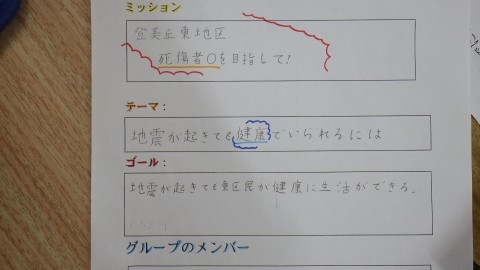 ミッション
登美丘東地区
死傷者0を目指して!
テーマ:
地震が起きても健康でいられるには
ゴール:
地震が起きても東区民が健康に生活ができる。
グループのメンバー